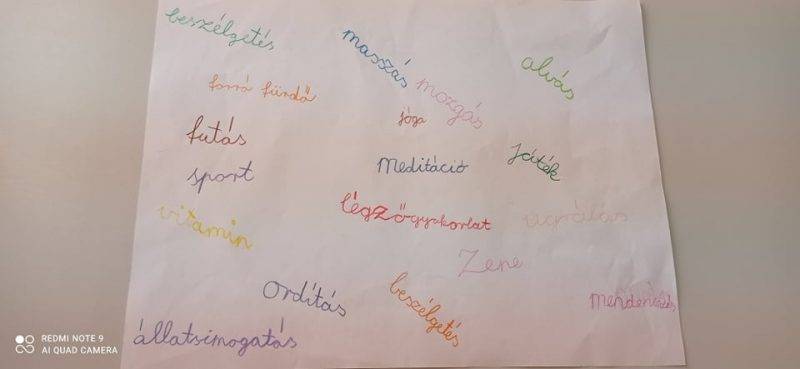 beszélgetés
masszás
alvás
forró fürdő
mozgás
jóga
futás
Játék
Meditáció
sport
légzőgyakorlat
ugrálás
vitamin
Zene
ordítás
beszélgetés
állatsimogatás
REDMI NOTE 9
AI QUAD CAMERA